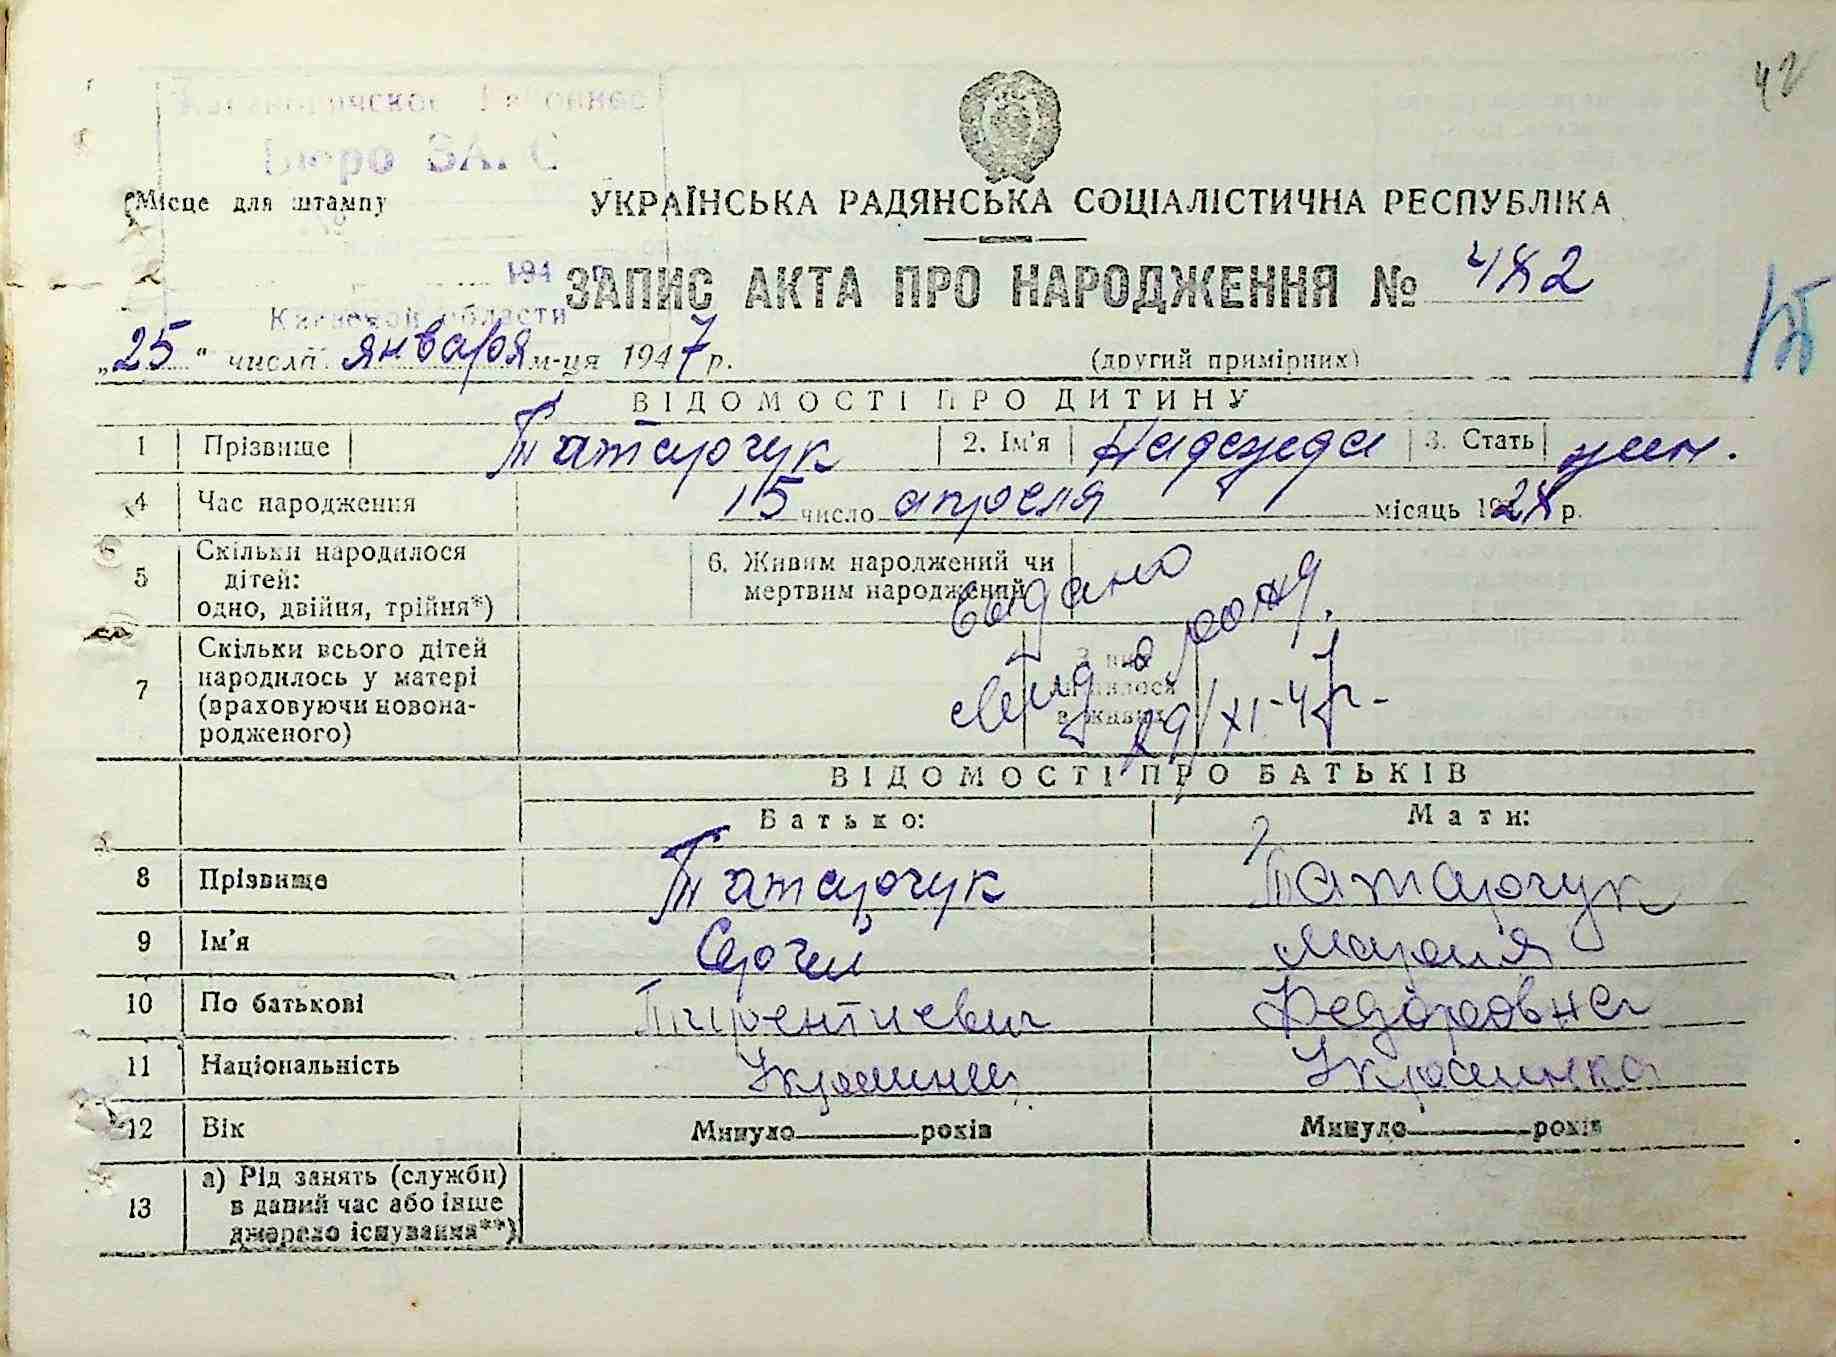 42
Бюро ЗАГС
Місце для штампу
УКРАЇНСЬКА РАДЯНСЬКА СОЦІАЛІСТИЧНА РЕСПУБЛІКА
194
ЗАПИС АКТА ПРО НАРОДЖЕННЯ № 482
Киевской области
„25“ числа января м-ця 1947 р.
(другий примірник)
ВІДОМОСТІ ПРО ДИТИНУ
1 Прізвище Татарчук 2. Ім'я Надежда 3. Стать жен.
4 Час народження 15 число апреля місяць 1928 р.
5 Скільки народилося дітей: одно, двійня, трійня*) 6. Живим народжений чи мертвим народжений
выдано
свид о рожд.
29/XI-47 г-
7 Скільки всього дітей народилось у матері (враховуючи новонародженого) З них лишилося в живих
ВІДОМОСТІ ПРО БАТЬКІВ
Батько: Мати:
8 Прізвище Татарчук Татарчук
9 Ім'я Сергей Мария
10 По батькові Терентиевич Федоровна
11 Національність Украинец Украинка
12 Вік Минуло ______ років Минуло ______ років
13 а) Рід занять (служби) в даний час або інше джерело існування**)